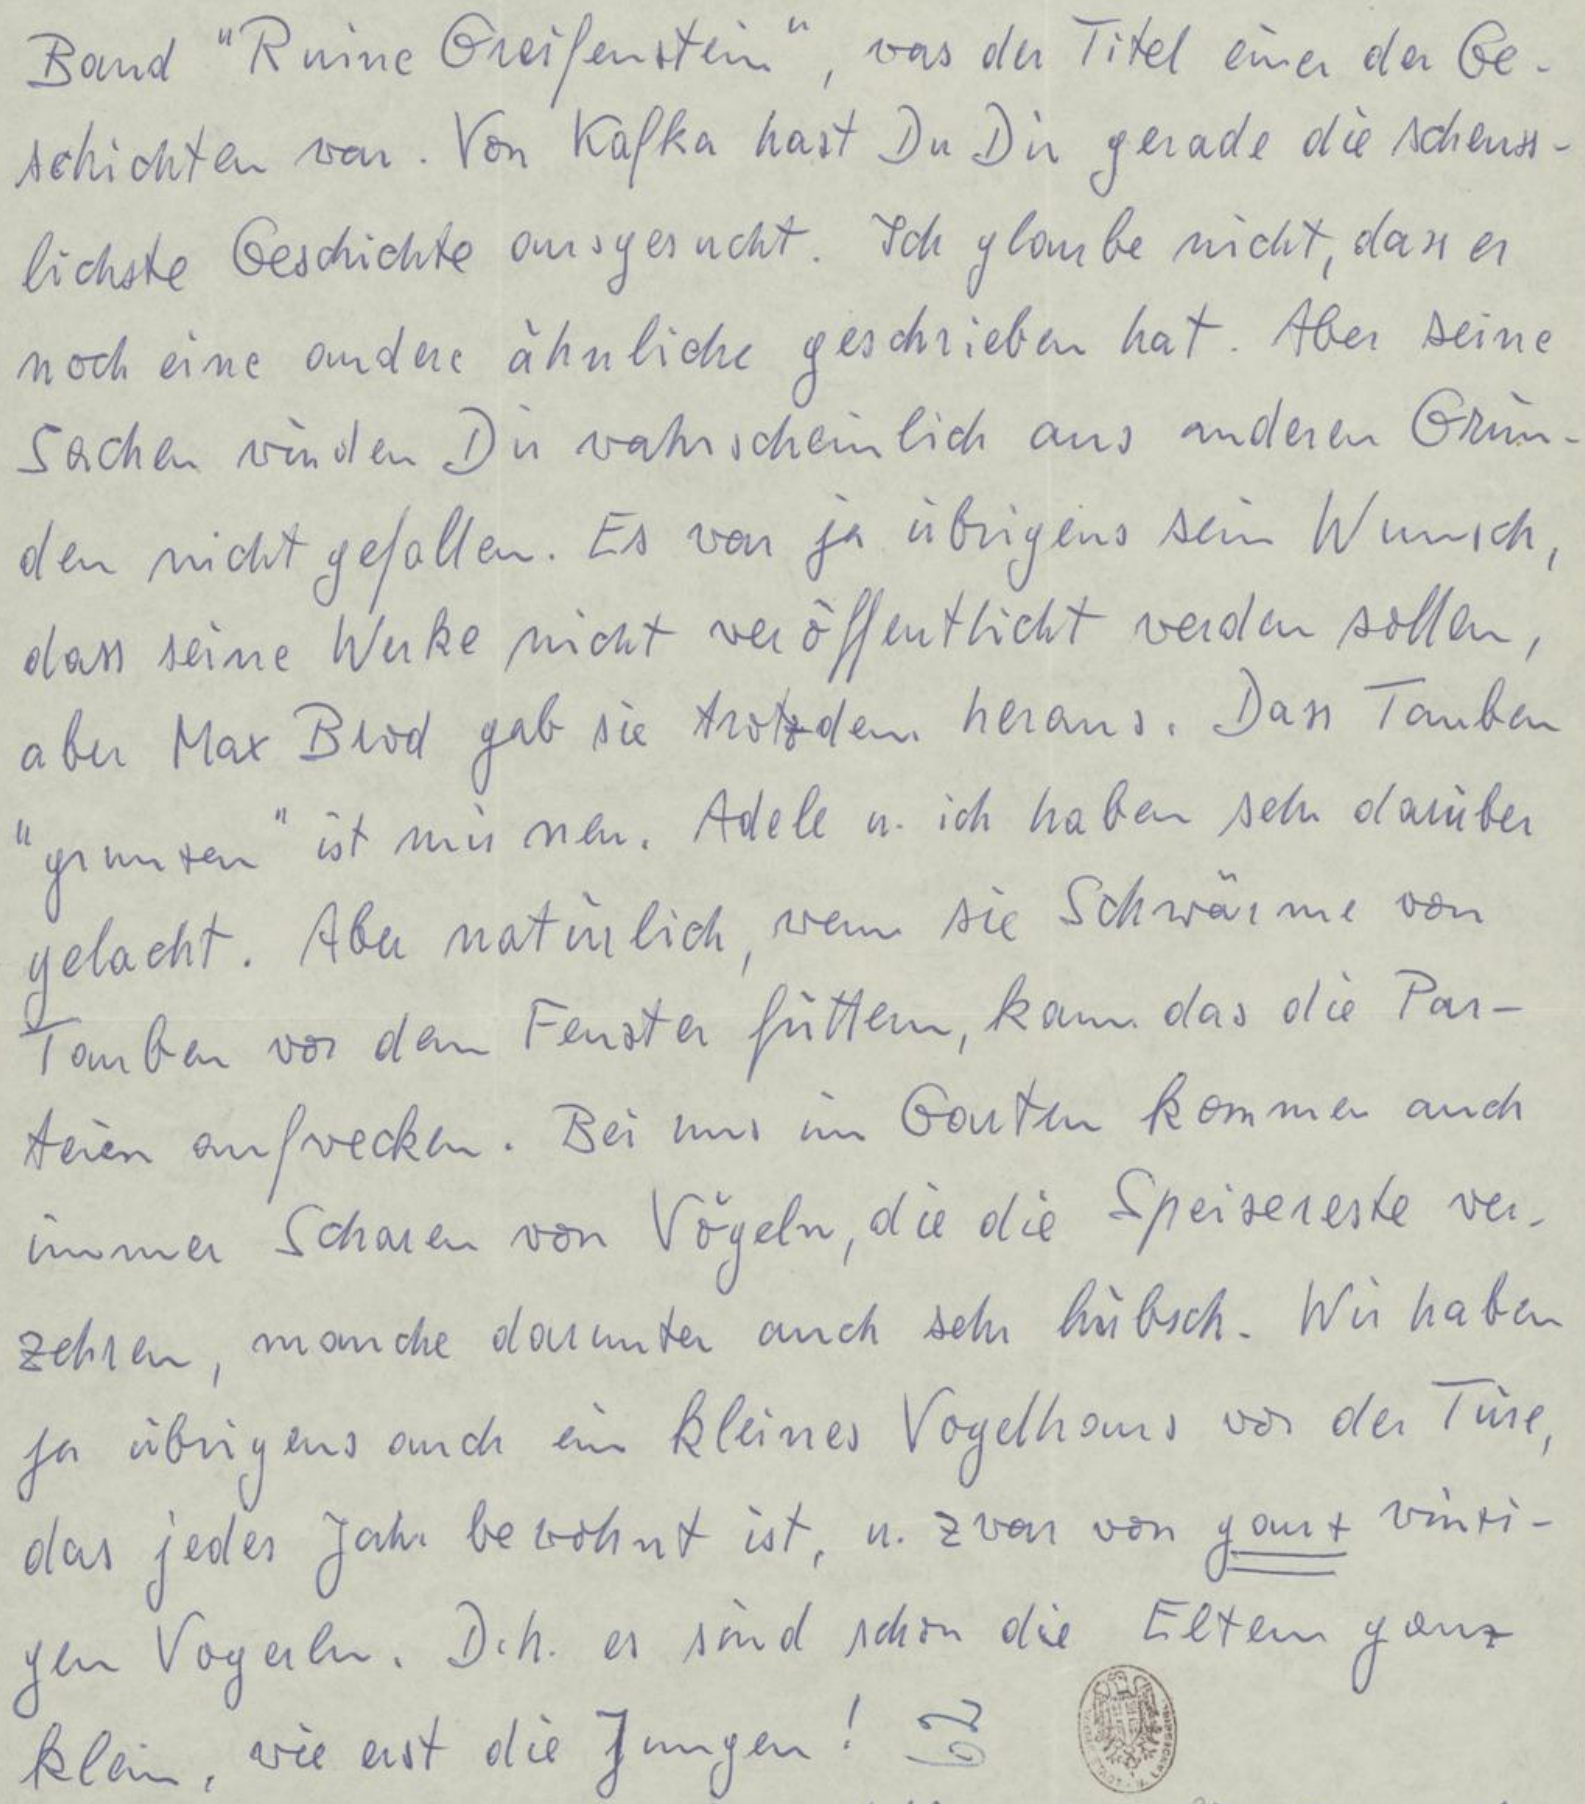 Band "Ruine Greifenstein", was der Titel einer der Ge-
schichten war. Von Kafka hast Du Dir gerade die scheuss-
lichste Geschichte ausgesucht. Ich glaube nicht, dass er
noch eine andere ähnliche geschrieben hat. Aber seine
Sachen würden Dir wahrscheinlich aus anderen Grün-
den nicht gefallen. Es war ja übrigens sein Wunsch,
dass seine Werke nicht veröffentlicht werden sollen,
aber Max Brod gab sie trotzdem heraus. Dass Tauben
"grunzen" ist mir neu. Adele u. ich haben sehr darüber
gelacht. Aber natürlich, wenn sie Schwärme von
Tauben vor dem Fenster füttern, kann das die Par-
teien aufwecken. Bei uns im Garten kommen auch
immer Scharen von Vögeln, die die Speisereste ver-
zehren, manche darunter auch sehr hübsch. Wir haben
ja übrigens auch ein kleines Vogelhaus vor der Türe,
das jedes Jahr bewohnt ist, u. zwar von ganz winzi-
gen Vogerln. D.h. es sind schon die Eltern ganz
klein, wie erst die Jungen! 62